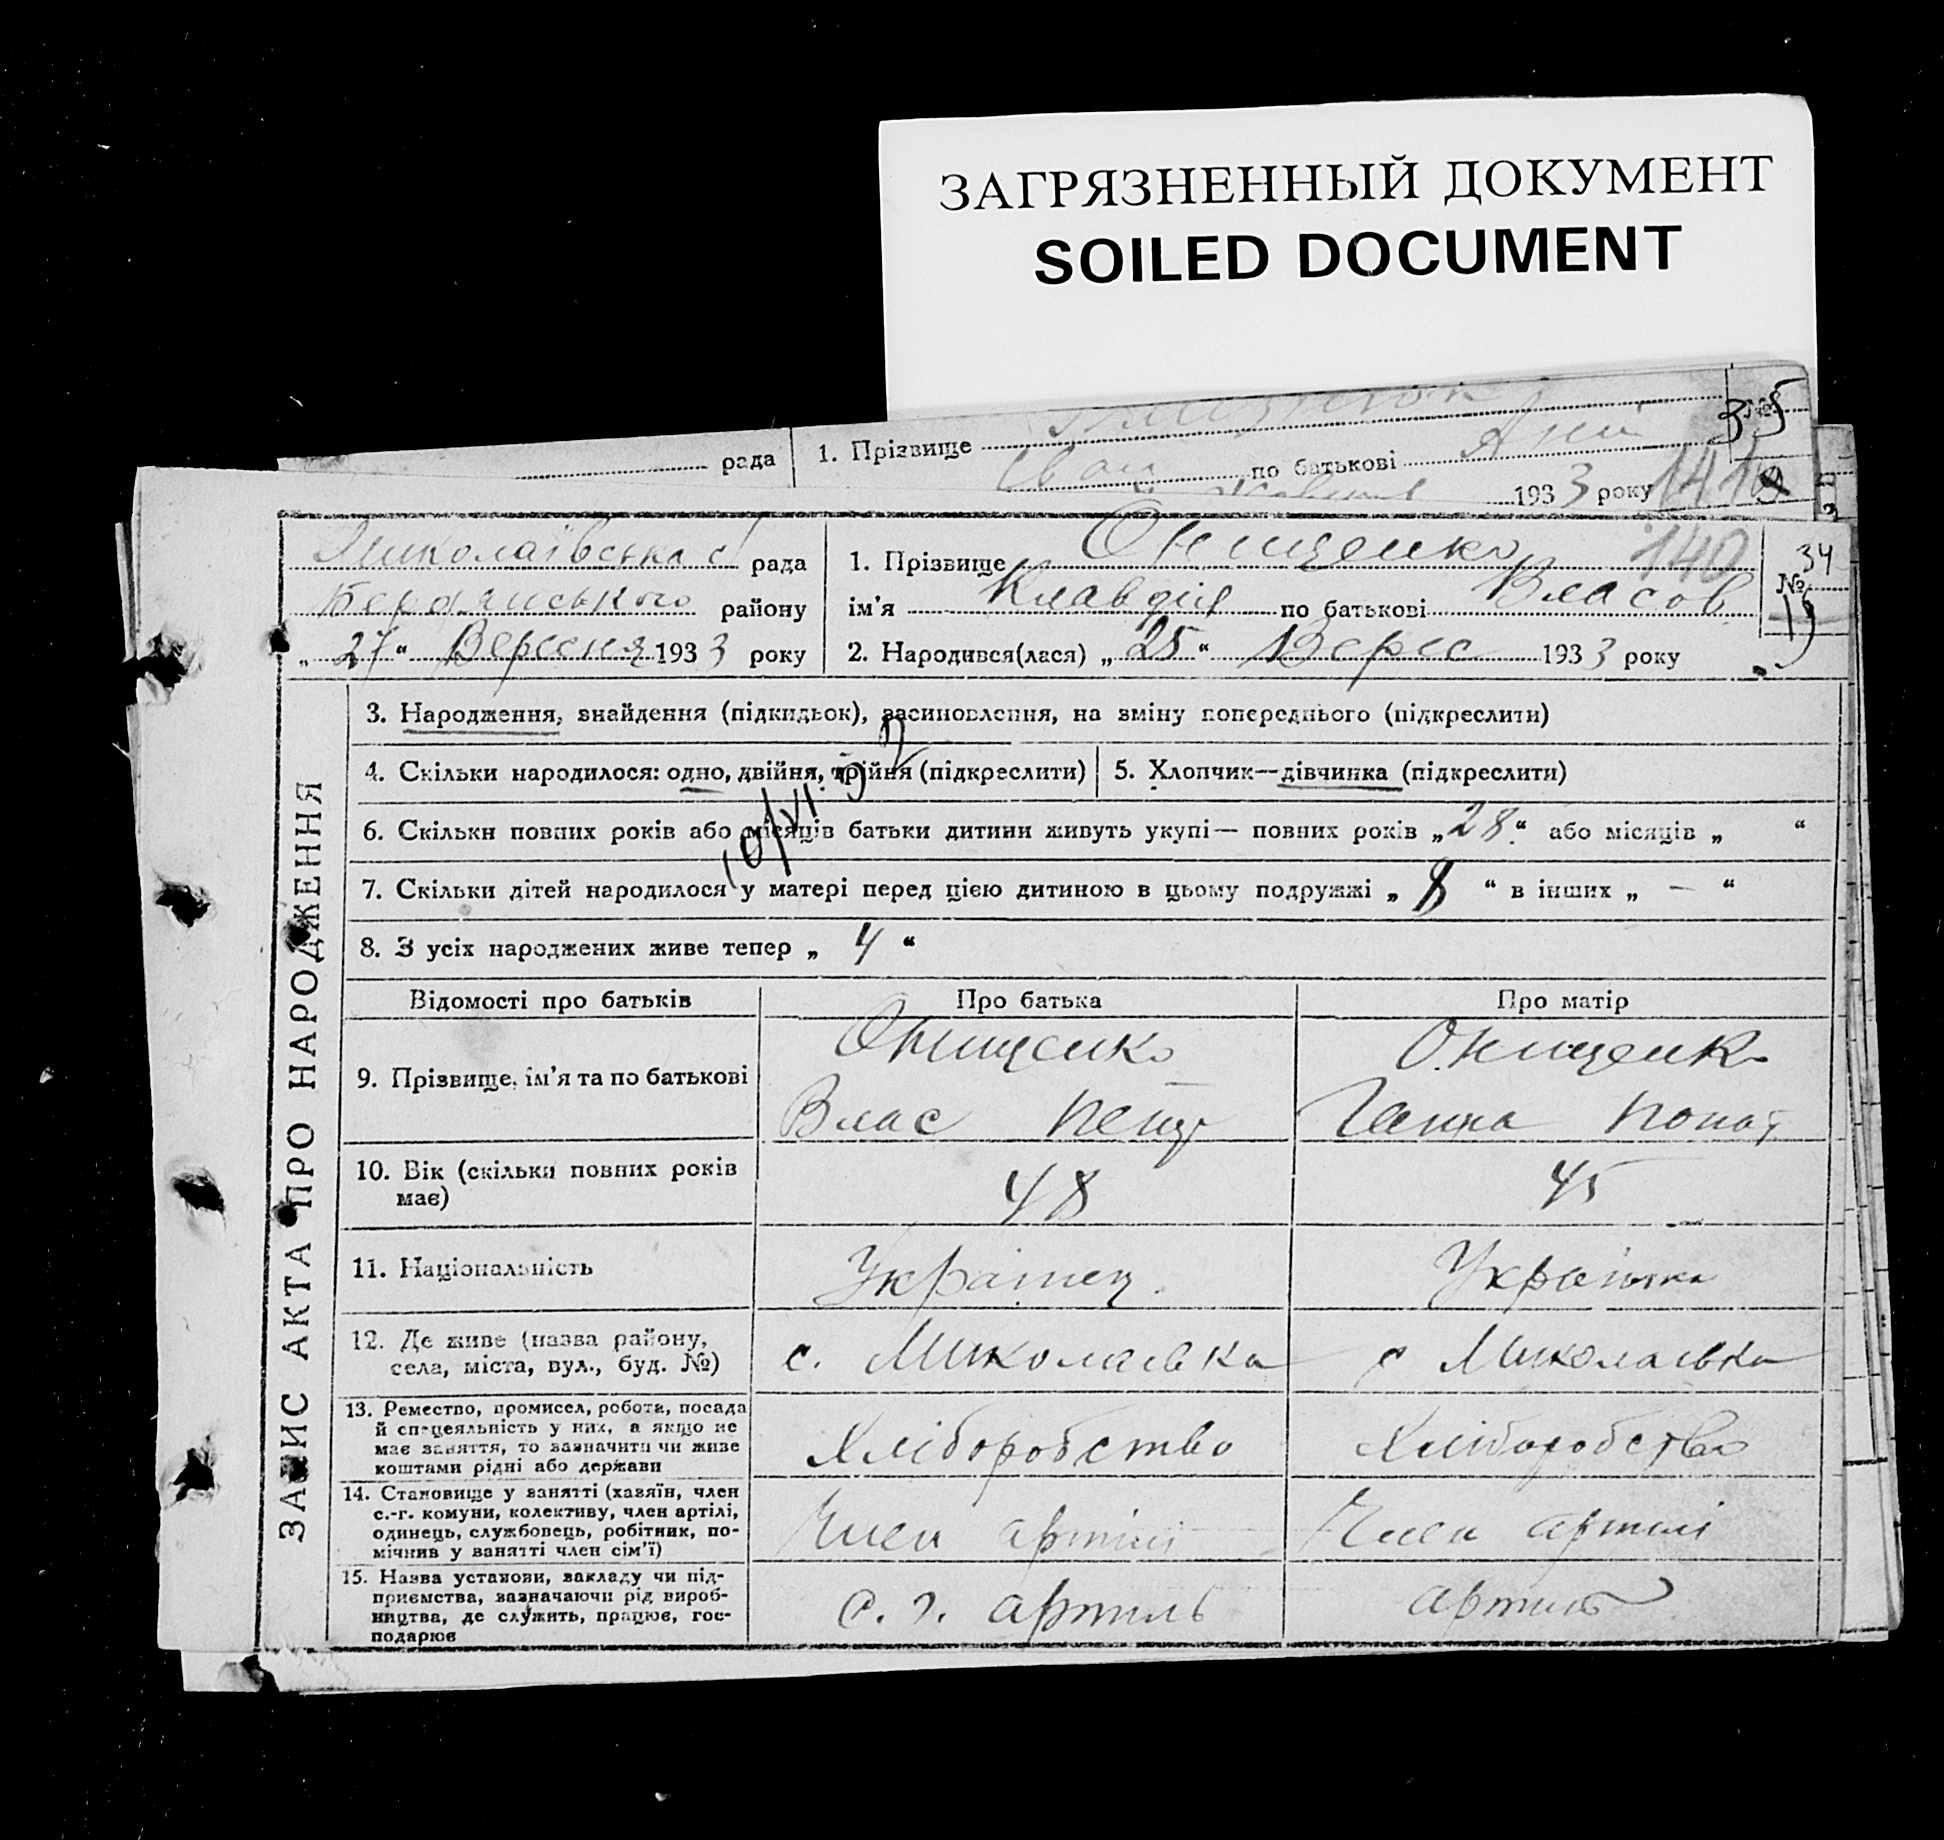 ЗАГРЯЗНЕННЫЙ ДОКУМЕНТ
SOILED DOCUMENT
рада 1. Прізвище 35
Іван по батькові
1933 року
Миколаївська с/ рада 1. Прізвище Онищенко 140 34
Бердянського району ім'я Клавдія по батькові Власов № 15
„27“ Вересня 1933 року 2. Народився(лася) „25“ Верес 1933 року
ЗАПИС АКТА ПРО НАРОДЖЕННЯ
3. Народження, знайдення (підкидьок), засиновлення, на зміну попереднього (підкреслити)
4. Скільки народилося: одно, двійня, трійня (підкреслити) 5. Хлопчик—дівчинка (підкреслити)
6. Скільки повних років або місяців батьки дитини живуть укупі— повних років „28“ або місяців „ “
7. Скільки дітей народилося у матері перед цією дитиною в цьому подружжі „8“ в інших „ — “
8. З усіх народжених живе тепер „4“
Відомості про батьків Про батька Про матір
Онищенко Онищенко
9. Прізвище, ім'я та по батькові
Влас Ганна
10. Вік (скільки повних років має) 48 45
11. Національність Українец Українка
12. Де живе (назва району,
села, міста, вул., буд. №) с. Миколаєвка с Миколаєвка
13. Ремество, промисел, робота, посада
й спецеяльність у них, а якщо не
має заняття, то зазначити чи живе
коштами рідні або держави
Хліборобство Хліборобство
14. Становище у занятті (хазяїн, член
с.-г. комуни, колективу, член артілі,
одинець, службовець, робітник, по-
мічнив у занятті член сім'ї)
Член артілі Член артілі
15. Назва установи, закладу чи під-
приємства, зазначаючи рід вироб-
ництва, де служить, працює, гос-
подарює
с. г. артиль артиль